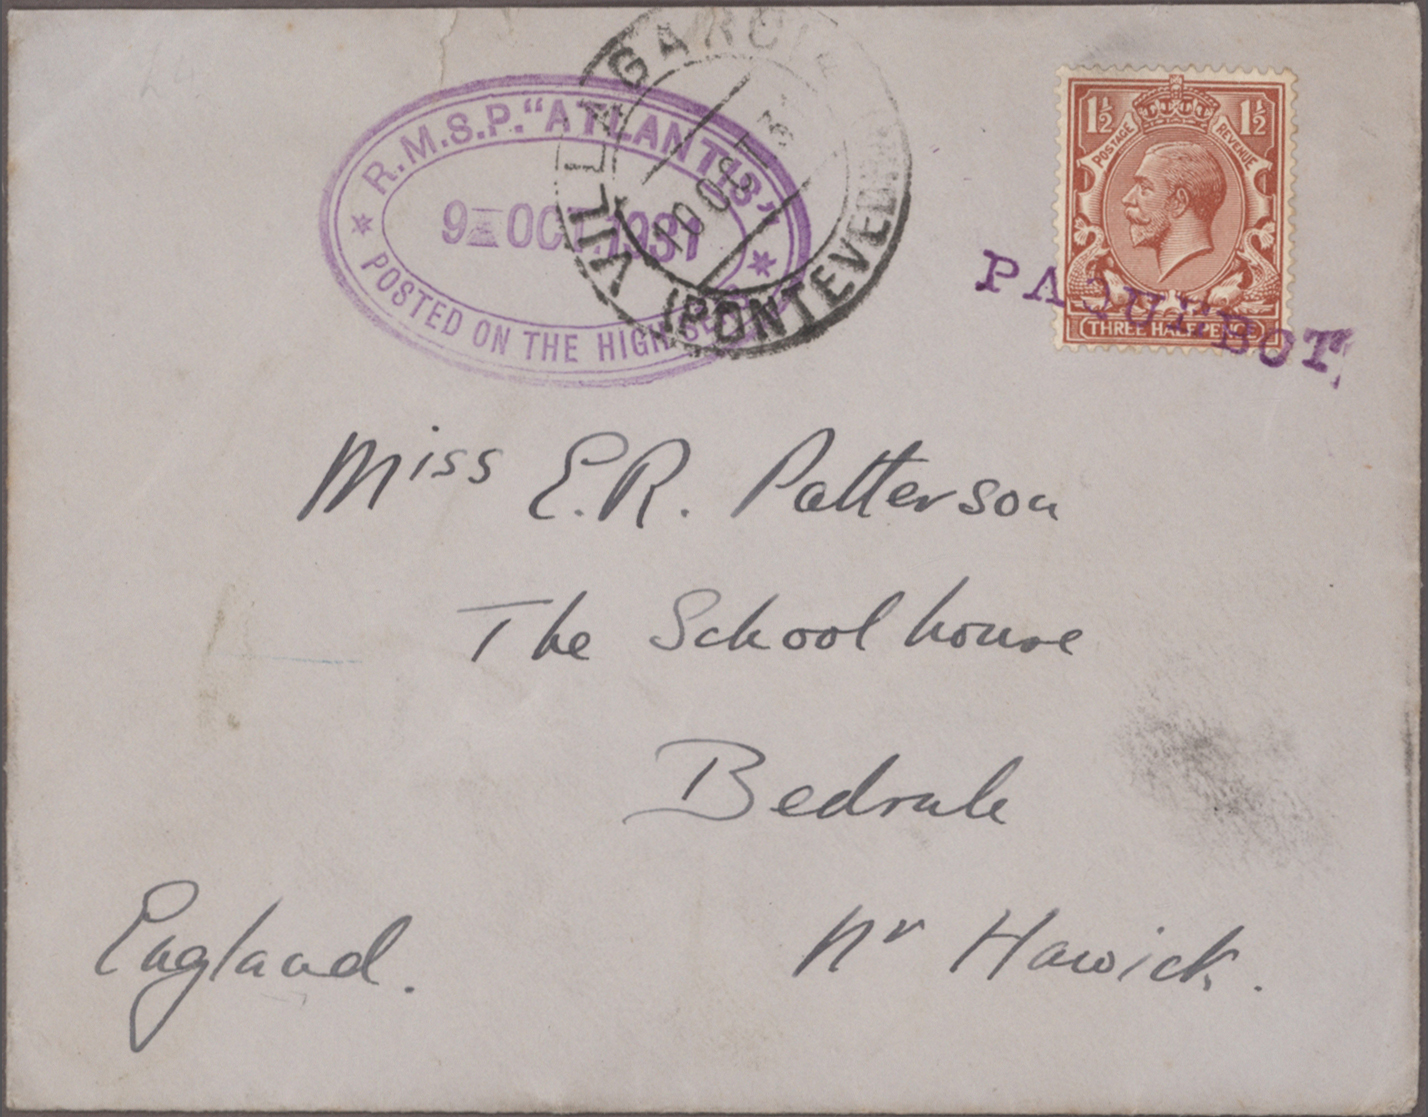 R.M.S.P. "ATLANTIS"
9 OCT 1931
POSTED ON THE HIGH SEAS
VILLAGARCIA
10 OCT 31
(PONTEVEDRA)
1½ 1½
POSTAGE REVENUE
THREE HALFPENCE
PAQUEBOT
Miss E.R. Patterson
The Schoolhouse
Bedrule
nr Hawick.
England.